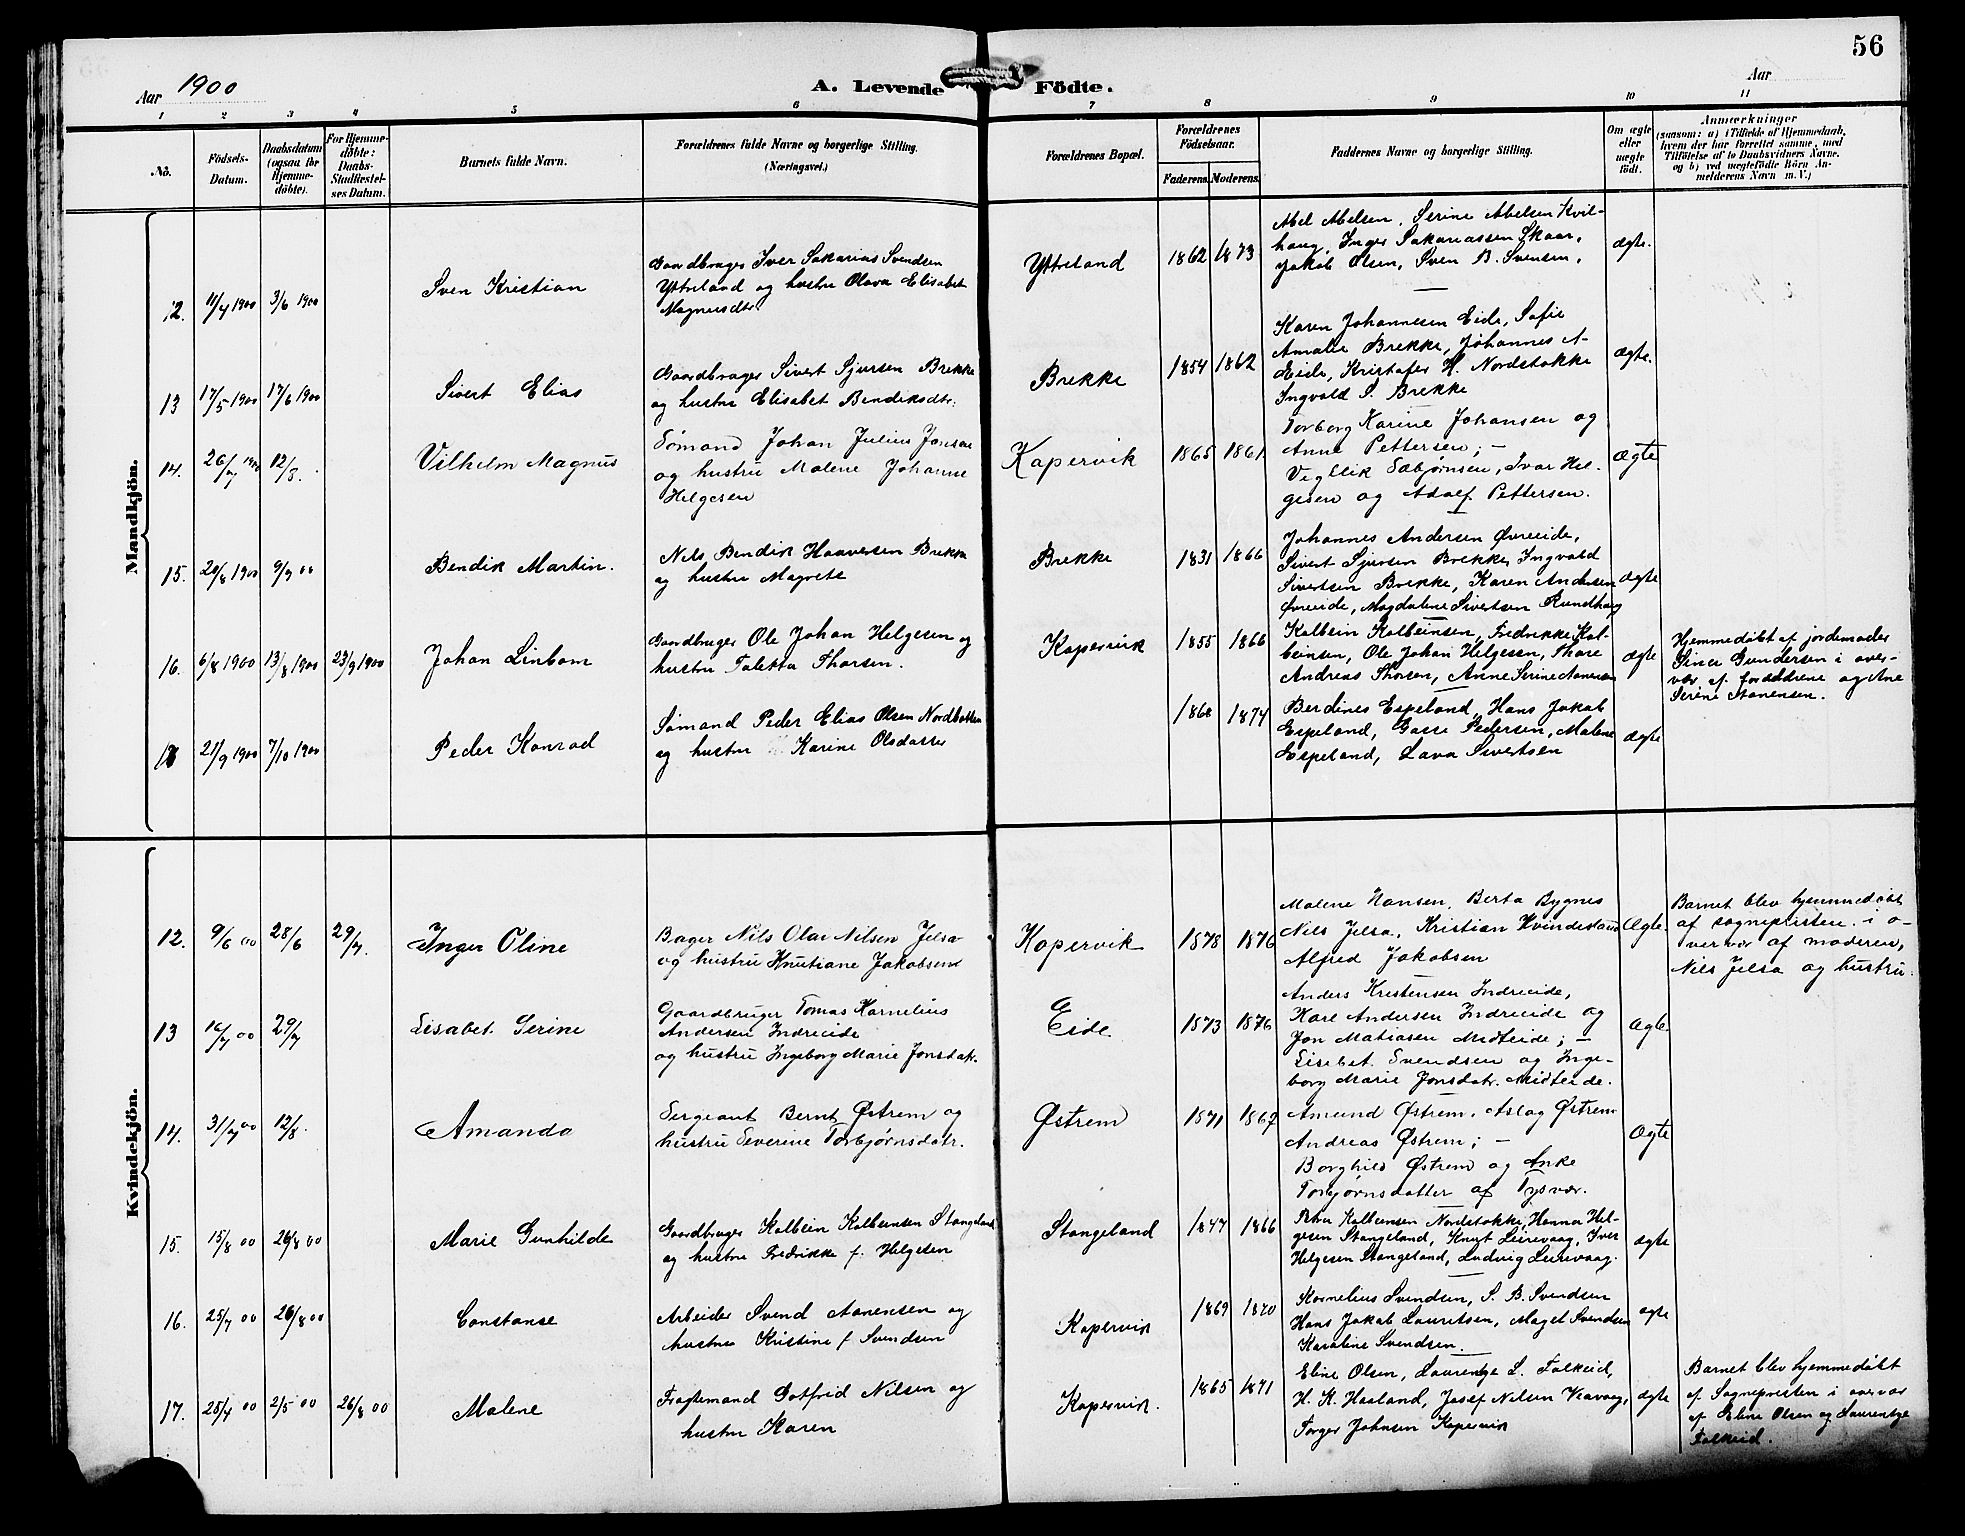 56
Aar 1900
A. Levende Födte.
Aar
1 2 3 4 5 6 7 8 9 10 11
No.
Födsels-
Datum.
Daabsdatum
(ogsaa for
Hjemme-
döbte).
For Hjemme-
döbte:
Daabs-
Stadfæstel-
ses Datum.
Barnets fulde Navn.
Forældrenes fulde Navne og borgerlige Stilling.
(Næringsvei.)
Forældrenes Bopæl.
Forældrenes
Födselsaar.
Faderens. Moderens.
Faddernes Navne og borgerlige Stilling.
Om ægte
eller
uægte
födt.
Anmærkninger
(saasom: a) i Tilfælde af Hjemmedaab,
hvem der har forrettet samme, med
Tilföielse af to Daabsvidners Navne.
og b) ved uægtefödte Börn An-
melderens Navn m. V.)
Mandkjön.
12. 11/4 1900 3/6 1900
Sven Kristian
Gaardbruger Iver Sakarias Svendsen
Ytreland og hustru Olava Elisabet
Magnusdtr.
Ytreland
1862 1873
Abel Abelsen, Serine Abelsen Kvil-
haug, Inger Sakariassen Skaar,
Jakob Olsen, Sven B. Svensen,
ægte.
13 17/5 1900 17/6 1900
Sivert Elias
Gaardbruger Sivert Sjursen Brekke
og hustru Elisabet Bendiksdtr.
Brekke
1854 1862
Karen Johannesen Eide, Sofie
Amalie Brekke, Johannes A-
Eide, Kristofer H. Nordstokke
Ingvald S. Brekke
ægte.
14. 26/7 1900 12/8.
Vilhelm Magnus
Sømand Johan Julius Jonsen
og hustru Malene Johanne
Helgesen
Kopervik
1865 1861
Torborg Karine Johansen og
Anne Pettersen; -
Vigleik Sæbjørnsen, Ivar Hel-
gesen og Adolf Pettersen.
Ægte
15. 20/8 1900 9/9 00
Bendik Martin.
Nils Bendik Haaversen Brekke
og hustru Magrete
Brekke
1831 1866
Johannes Andersen Øvreeide,
Sivert Sjursen Brekke, Ingvald
Sivertsen Brekke, Karen Andersen
Øvreeide, Magdalene Sivertsen Rundhaug
ægte
16. 6/8 1900 13/8 1900 23/9 1900
Johan Linbom
Gaardbruger Ole Johan Helgesen og
hustru Taletta Thorsen.
Kopervik
1855 1866
Kolbein Kolbeinsen, Fredrikke Kol-
beinsen, Ole Johan Helgesen, Thore
Andreas Thorsen, Anne Serine Aanensen
ægte
Hjemmedøbt af jordemoder
Sina Gundersen i over-
vær af forældrene og Ane
Serine Aanensen.
21/9 1900 7/10 1900
Peder Konrad
Sømand Peder Elias Olsen Nordbotten
og hustru Karine Olsdatter
1868 1874
Berdines Espeland, Hans Jakob
Espeland, Gasse Pedersen, Malene
Espeland, Lava Sivertsen
ægte
Kvindekjön.
12. 9/6 00 28/6 29/7.
Inger Oline
Bager Nils Olai Nilsen Jelsa
og hustru Knutiane Jakobsen
Kopervik
1878 1876
Malene Hansen, Berta Bygnes
Nils Jelsa, Kristian Kvindesland
Alfred Jakobsen
Ægte.
Barnet blev hjemmedøbt
af sognepresten i o-
vervær af moderen,
Nils Jelsa og hustru.
13 16/7 00 29/7
Lisabet Serine
Gaardbruger Tomas Kornelius
Andersen Indreeide
og hustru Ingeborg Marie Jonsdatr.
Eide
1873 1876
Anders Kristensen Indreeide,
Karl Andersen Indreeide og
Jon Matiasen Midteide; -
Lisebet Svendsen og Inge-
borg Marie Jonsdatr. Midteide.
Ægte.
14. 31/7 00 12/8.
Amanda
Sergeant Bernt Østrem og
hustru Severine Torbjørnsdatr.
Østrem
1871 1867
Amund Østrem, Aslag Østrem
Andreas Østrem; -
Borghild Østrem og Anke
Torbjørnsdatter af Tysvær.
Ægte
15. 15/8 00 26/8 00
Marie Gunhilde
Gaardbruger Kolbein Kolbeinsen Stangeland
og hustru Fredrikke f. Helgesen
Stangeland
1847 1866
Petra Kolbeinsen Nordstokke, Hanna Hel-
gesen Stangeland, Knut Leirevaag, Iver
Helgesen Stangeland, Ludvig Leirevaag.
ægte
16. 25/7 00 26/8 00
Constanse
Arbeider Svend Aanensen og
hustru Kristine f. Svendsen
Kopervik
1869 1870
Kornelius Svendsen, S. B. Svendsen
Hans Jakob Lauritsen, Maget Svendsen
Karoline Svendsen.
ægte
17. 25/4 00 2/5 00 26/8 00
Malene
Fragtemand Gotfrid Nilsen og
hustru Karen
Kopervik.
1865 1871
Eline Olsen, Laurentse L. Falkeid,
H. K. Haaland, Josef Nilsen Kvavaag,
Torger Johnsen Kopervik
ægte
Barnet blev hjemmedøbt
af Sognepresten i overvær
af Eline Olsen og Laurentse
Falkeid.